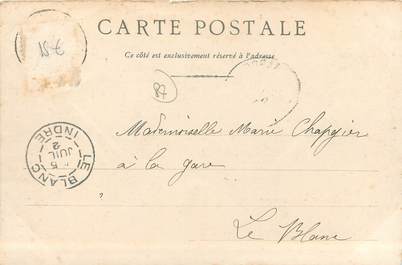 CARTE POSTALE
Ce côté est exclusivement réservé à l'adresse
87
Mademoiselle Marie Chapgier
à la gare
Le Blanc
LE BLANC
INDRE
5
JUIL